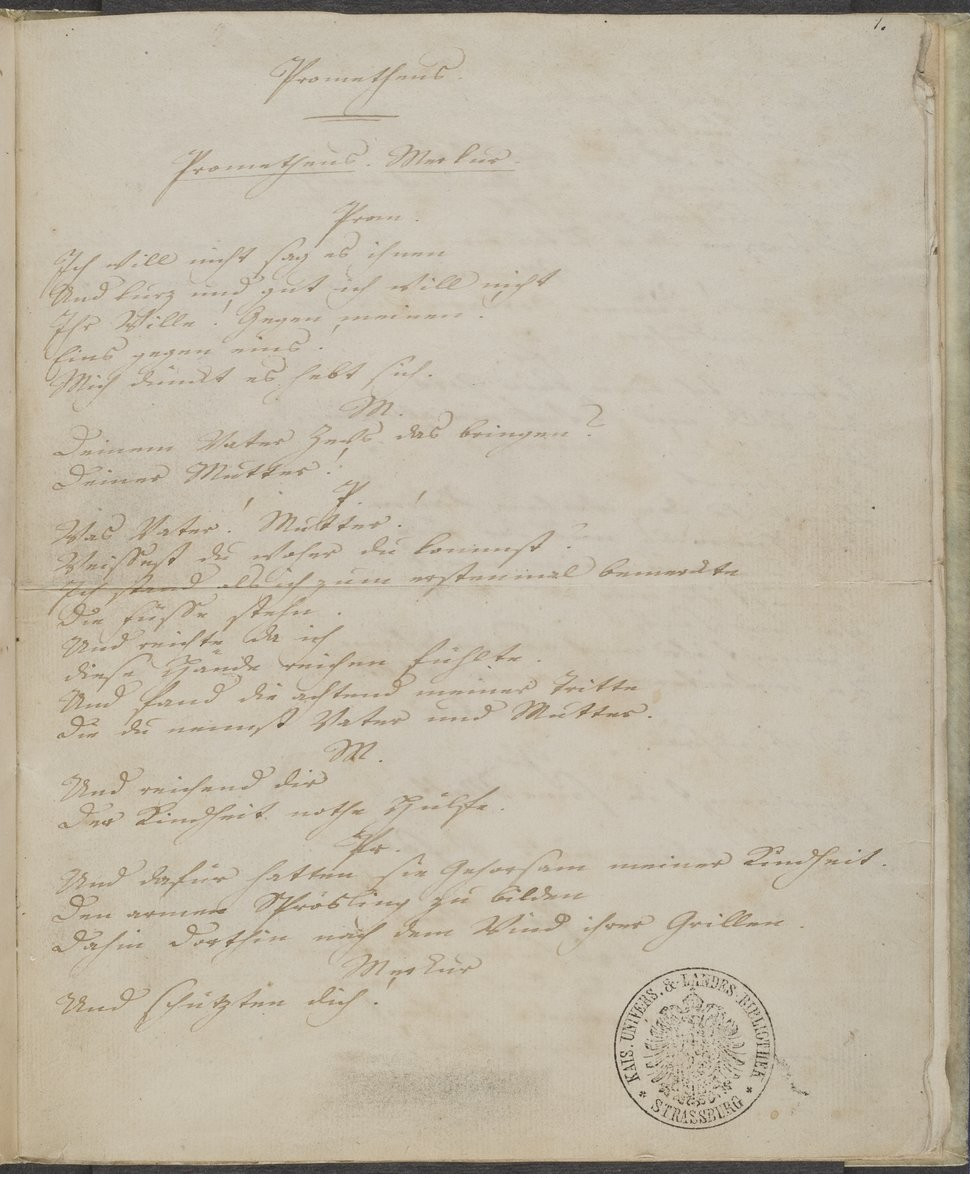 1.
Prometheus.
Prometheus. Merkur.
Prom.
Ich will nicht sag es ihnen
Und kurz und gut ich will nicht
Ihr Wille! Gegen meinen!
Eins gegen eins!
Mich dünckt es hebt sich.
M.
Deinem Vater Zevs das bringen?
Deiner Mutter!
P.
Was Vater! Mutter!
Weissest du woher du kommst!
Ich stand als ich zum erstenmal bemerckte
Die Füsse stehn.
Und reichte da ich
diese Hände reichen fühlte.
Und fand die achtend meiner Tritte
Die du nennst Vater und Mutter.
M.
Und reichend dir
Der Kindheit nothe Hülfe.
Pr.
Und dafür hatten sie Gehorsam meiner Kindheit.
Den armen Sprösling zu bilden
Dahin dorthin nach dem Wind ihrer Grillen.
Merkur
Und schüzten dich!
KAIS. UNIVERS. & LANDES-BIBLIOTHEK * STRASSBURG *